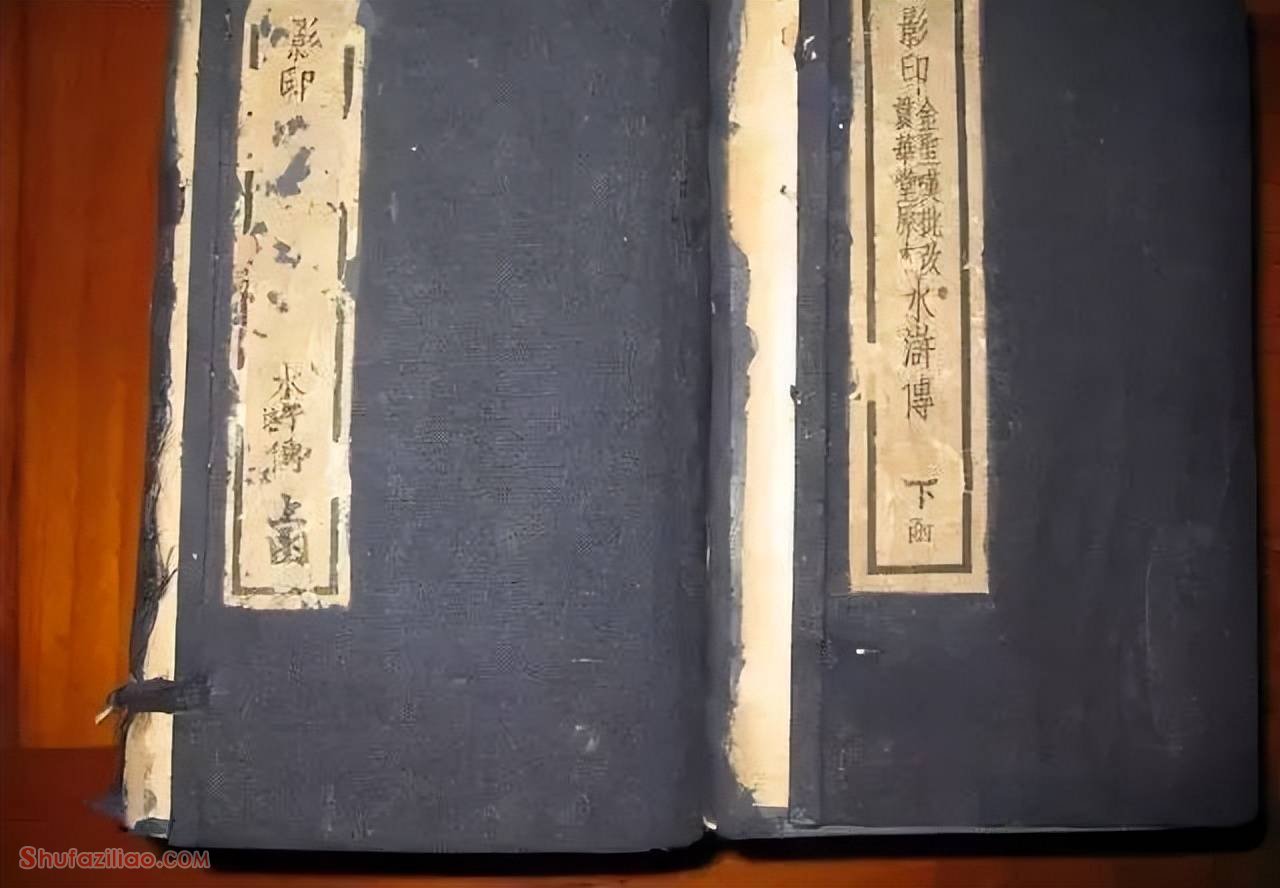 影印
水滸傳
上函
影印
金聖嘆批改
貫華堂原本
水滸傳
下函
Shufaziliao.com